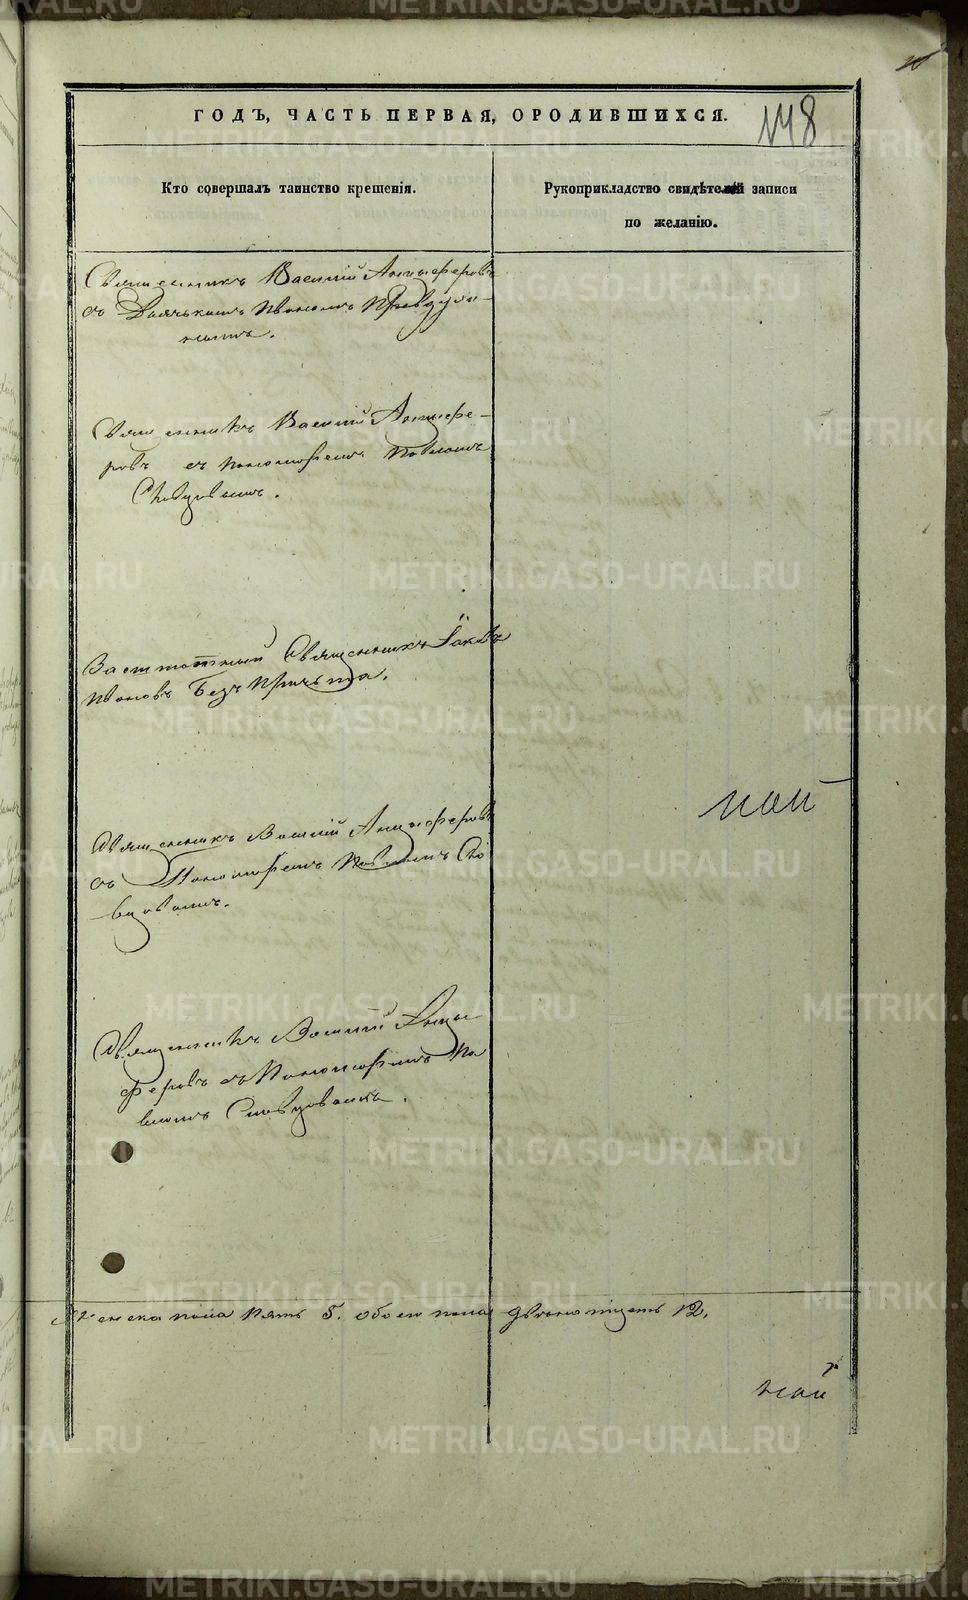 ГОДЪ, ЧАСТЬ ПЕРВАЯ, ОРОДИВШИХСЯ.
148
Кто совершалъ таинство крещенія.
Рукоприкладство свидѣтелей записи
по желанію.
Священникъ Василій Анцыферовъ
съ Дьячькомъ Иваномъ
Священникъ Василій Анцыфе-
ровъ съ пономаремъ Павломъ
Заштатный Священникъ Іаковъ
Ивановъ Безъ Причьта.
Священникъ Василій Анцыферовъ
съ Пономаремъ Павломъ
Священникъ Василій Анцы-
феровъ съ Пономаремъ Па
вломъ
Женска пола пять 5. обоего пола двенатцеть 12.
METRIKI.GASO-URAL.RU